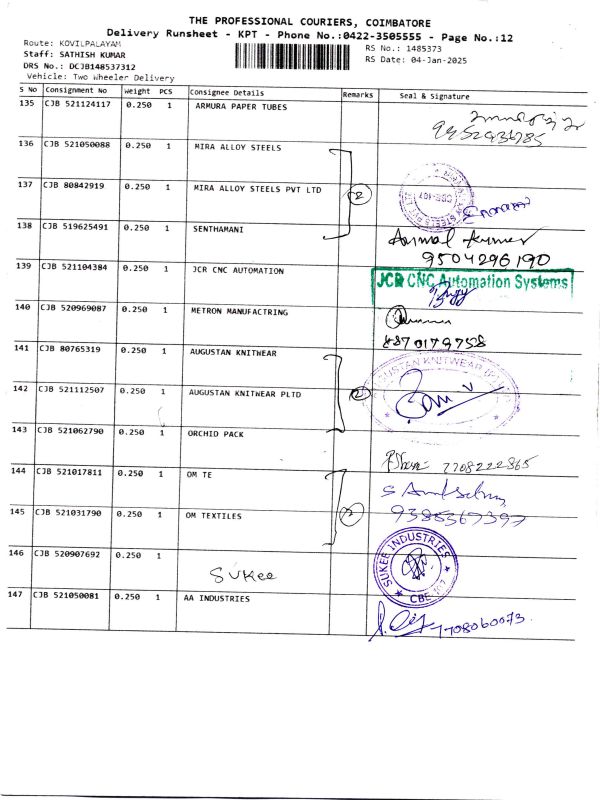 THE PROFESSIONAL COURIERS, COIMBATORE
Delivery Runsheet - KPT - Phone No.:0422-3505555 - Page No.:12
Route: KOVILPALAYAM
Staff: SATHISH KUMAR
DRS No.: DCJB148537312
Vehicle: Two Wheeler Delivery
RS No.: 1485373
RS Date: 04-Jan-2025
S No Consignment No Weight PCS Consignee Details Remarks Seal & Signature
135 CJB 521124117 0.250 1 ARMURA PAPER TUBES
9952936785
136 CJB 521050088 0.250 1 MIRA ALLOY STEELS
137 CJB 80842919 0.250 1 MIRA ALLOY STEELS PVT LTD 2
CBE-107
138 CJB 519625491 0.250 1 SENTHAMANI
9504296190
139 CJB 521104384 0.250 1 JCR CNC AUTOMATION JCR CNC Automation Systems
140 CJB 520969087 0.250 1 METRON MANUFACTRING
8870179758
141 CJB 80765319 0.250 1 AUGUSTAN KNITWEAR
AUGUSTAN KNITWEAR
142 CJB 521112507 0.250 1 AUGUSTAN KNITWEAR PLTD 2
143 CJB 521062790 0.250 1 ORCHID PACK
7708222865
144 CJB 521017811 0.250 1 OM TE
145 CJB 521031790 0.250 1 OM TEXTILES 2
9385367397
146 CJB 520907692 0.250 1 Sukee
SUKEE INDUSTRIES
CBE-107
147 CJB 521050081 0.250 1 AA INDUSTRIES
7708060073